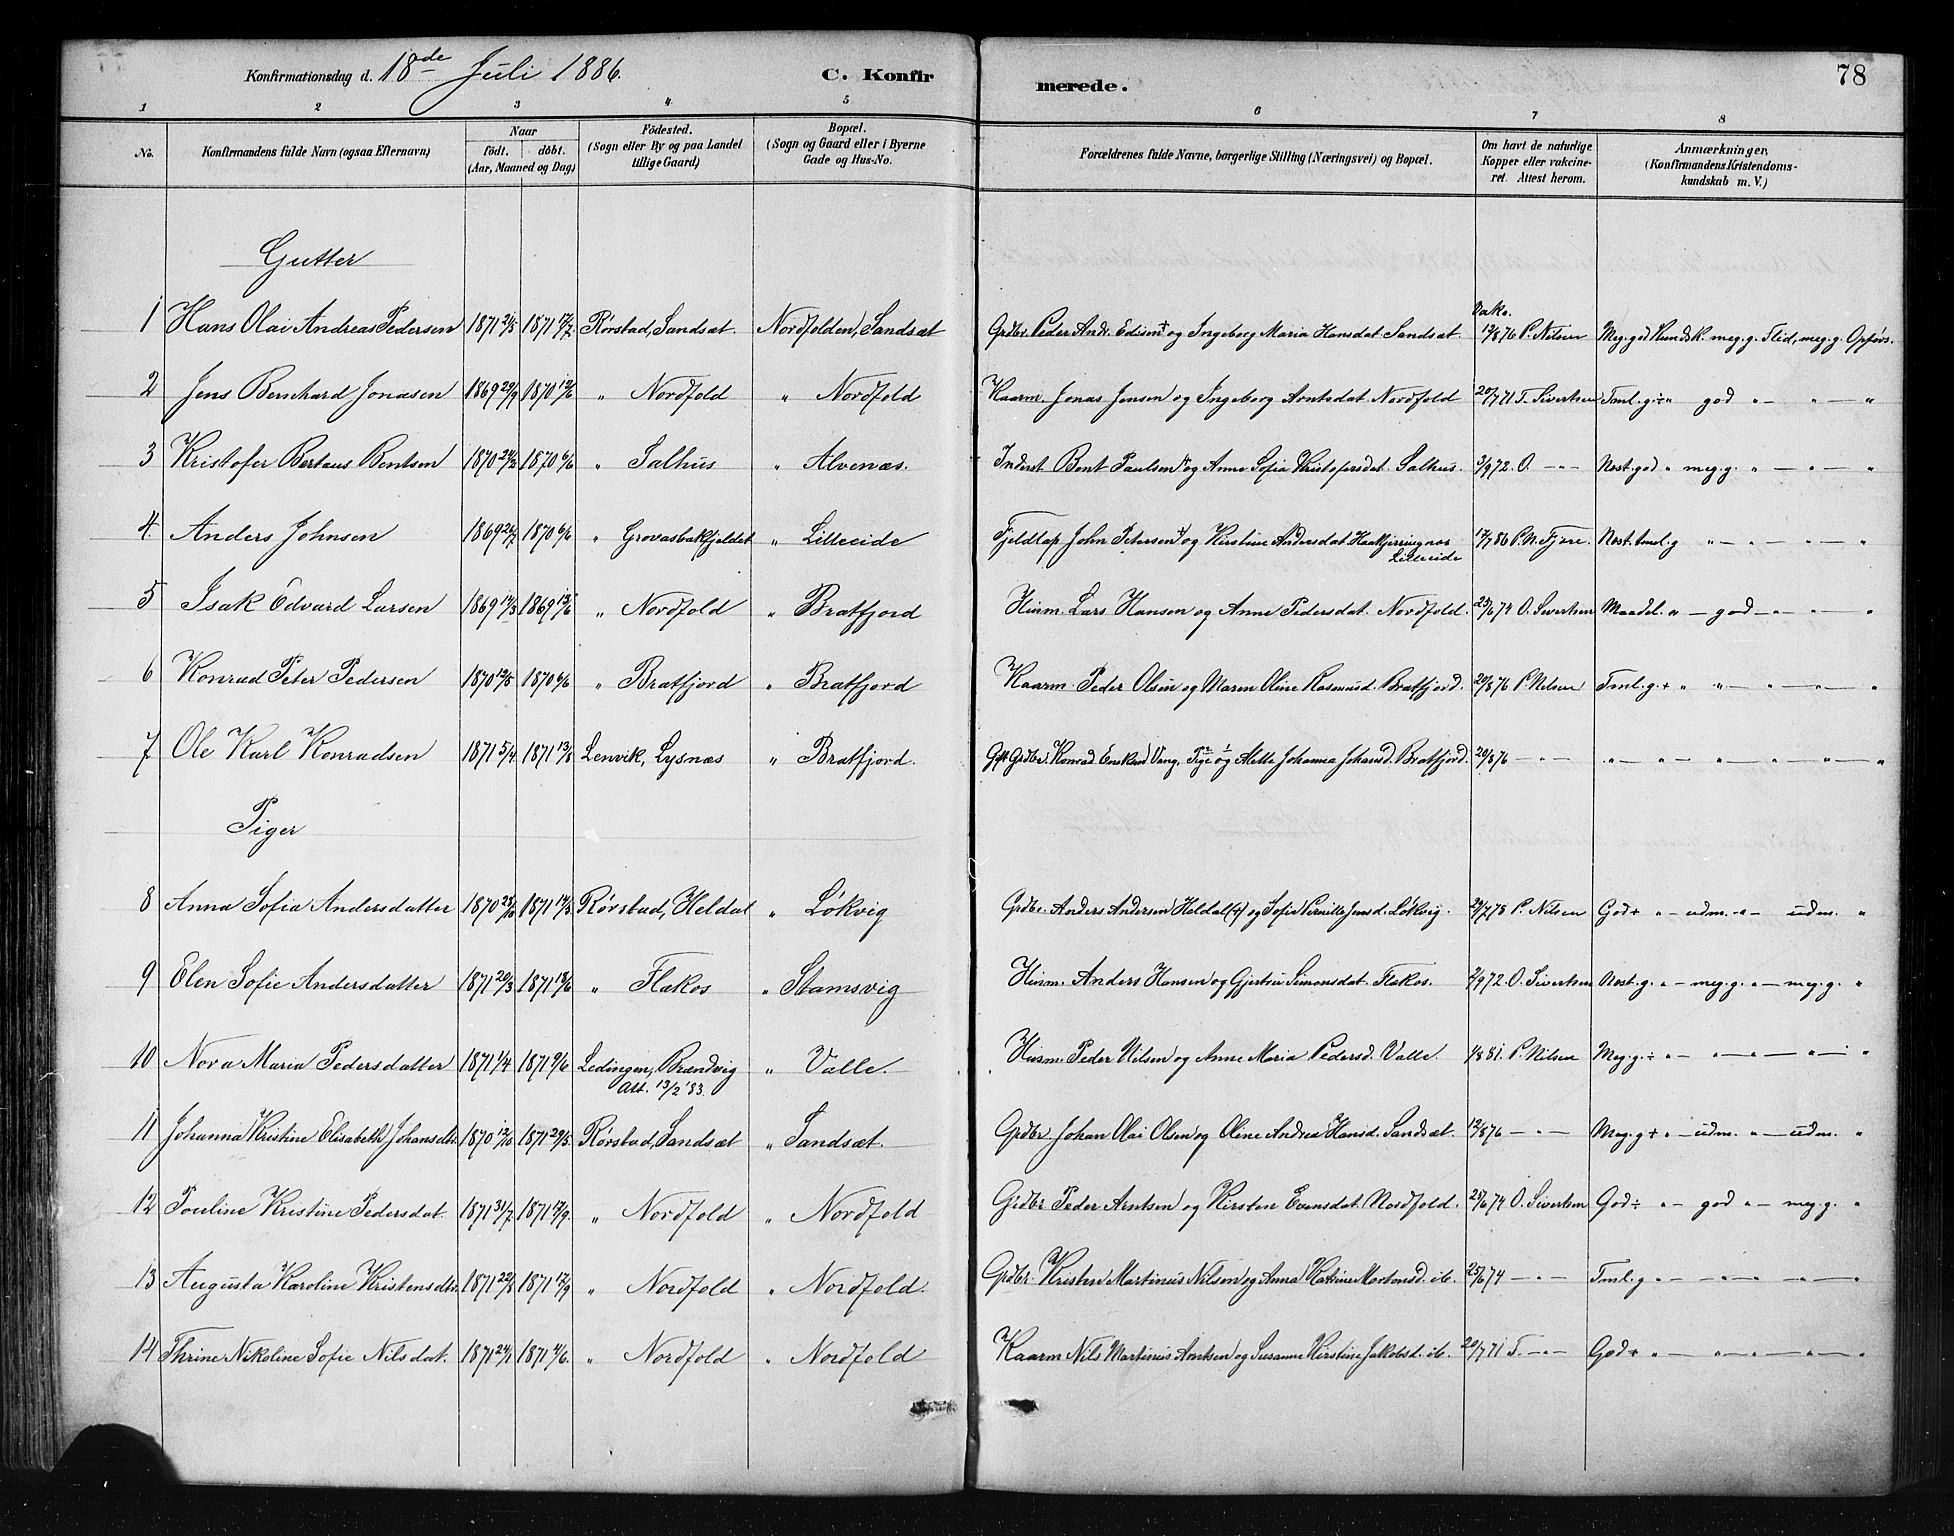 Konfirmationsdag d. 18de Juli 1886. C. Konfirmerede. 78
1 2 3 4 5 6 7 8
No. Konfirmandens fulde Navn (ogsaa Efternavn) Naar født. døbt. (Aar, Maaned og Dag) Fødested. (Sogn eller By og paa Landet tillige Gaard) Bopæl. (Sogn og Gaard eller i Byerne Gade og Hus-No. Forældrenes fulde Navne, borgerlige Stilling (Næringsvei) og Bopæl. Om havt de naturlige Kopper eller vakcineret. Attest herom. Anmærkninger, (Konfirmandens Kristendomskundskab m. V.)
Gutter
1 Hans Olai Andreas Pedersen 1871 21/5 1871 Rørstad, Sandsæt. Nordfolden, Sandsæt Grdbr. Peder Andr. Edisen + og Ingeborg Maria Hansdat. Sandsæt. Vakc. 12/8 76 P. Nilsen Meg. god Kundsk. meg. g. Flid, meg. g. Opførs.
2 Jens Bernhard Jonasen 1869 29/9 1870 12/6 " Nordfold " Nordfold Kaarm. Jonas Jensen og Ingeborg Arntsdat. Nordfold 20/7 71 T. Sivertsen Tml. g ÷ " god " — " — "
3 Kristofer Bertaus Bentsen 1870 24/2 1870 6/6 " Salhus " Alvenæs. Inderst Bent Paulsen + og Anne Sofia Kristofersdat. Salhus. 3/9 72. O. — " — Næst. god " meg. g. " — " — "
4. Anders Johnsen 1869 26/7 1870 6/6 " Grovasbakfjeldet " Lilleeide Fjeldlap John Petersen + og Kirstine Andersdat Haakjerringnæs Lilleeide 17/7 86 P. N. Fjære. Næst. tml. g " — " — "
5 Isak Edvard Larsen 1869 14/3 1869 13/6 " Nordfold " Bratfjord Husm. Lars Hansen og Anne Pedersdat. Nordfold. 23/6 74 O. Sivertsen Maadel. " — god — " — " — "
6 Konrad Peter Pedersen 1870 12/5 1870 6/6 " Bratfjord " Bratfjord Kaarm. Peder Olsen og Maren Oline Rasmusd. Bratfjord. 20/8 76 P. Nilsen Tml. g. + " " — " — " — "
7 Ole Karl Konradsen 1871 5/4 1871 13/8 Lenvik, Lysnæs " Bratfjord. Gft. Grdbr. Konrad Vang, Pige og Mette Johanna Johansd. Bratfjord. 20/8 76 — " — " — " — " — " — " — "
Piger
8 Anna Sofia Andersdatter 1870 28/10 1871 14/3 Rørstad, Heldal " Løkvig Grdbr. Anders Andersen Heldal (+) og Sofie Pernille Jensd. Løkvig. 29/7 78 P. Nilsen God + " — udm. " — udm. "
9 Elen Sofie Andersdatter 1871 20/3 1871 18/6 " Flekos " Stamsvig Husm. Anders Hansen og Gjertru Simonsdat. Flekos. 2/9 72. O. Sivertsen Næst. g. " — meg. g. " — meg. g. "
10 Nora Maria Pedersdatter 1871 1/4 1871 9/6 Lødingen, Brændvig Att. 13/2 '83. " Valle. Husm. Peder Nilsen og Anne Maria Pedersd. Valle 1/8 81. P. Nilsen Meg. g. ÷ " — " — " — " — "
11 Johanna Kristine Elisabeth Johansdtr. 1870 12/10 1871 29/5 Rørstad, Sandsæt " Sandsæt. Grdbr Johan Olai Olsen og Oline Andrea Hansd. Sandsæt. 12/8 76 — " — Meg. g + " — udm. " — udm. "
12 Pouline Kristine Pedersdat. 1871 31/7 1871 17/9. " Nordfold " Nordfold Grdbr Peder Arntsen og Kirsten Evensdat. Nordfold. 25/6 74 O. Sivertsen God ÷ " — god " — meg. g. "
13 Augusta Karoline Kristensdtr. 1871 22/8 1871 17/9 " Nordfold " Nordfold. Grdbr. Kristen Martinus Nilsen og Anna Katrine Mortensd. ib. 25/6 74 — " — Tml. g " — " — " — " — "
14 Thrine Nikoline Sofie Nilsdat. 1871 24/1 1871 4/6. " Nordfold " Nordfold Kaarm Nils Martinus Arntsen og Susanne Kirstine Jakobsd. ib. 20/7 71 T. — " — God + " — " — " — " — "